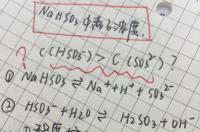 NaHSO₃中离子浓度.
? C(HSO₃⁻) > C(SO₃²⁻) ?
① NaHSO₃ ⇌ Na⁺ + H⁺ + SO₃²⁻
② HSO₃⁻ + H₂O ⇌ H₂SO₃ + OH⁻